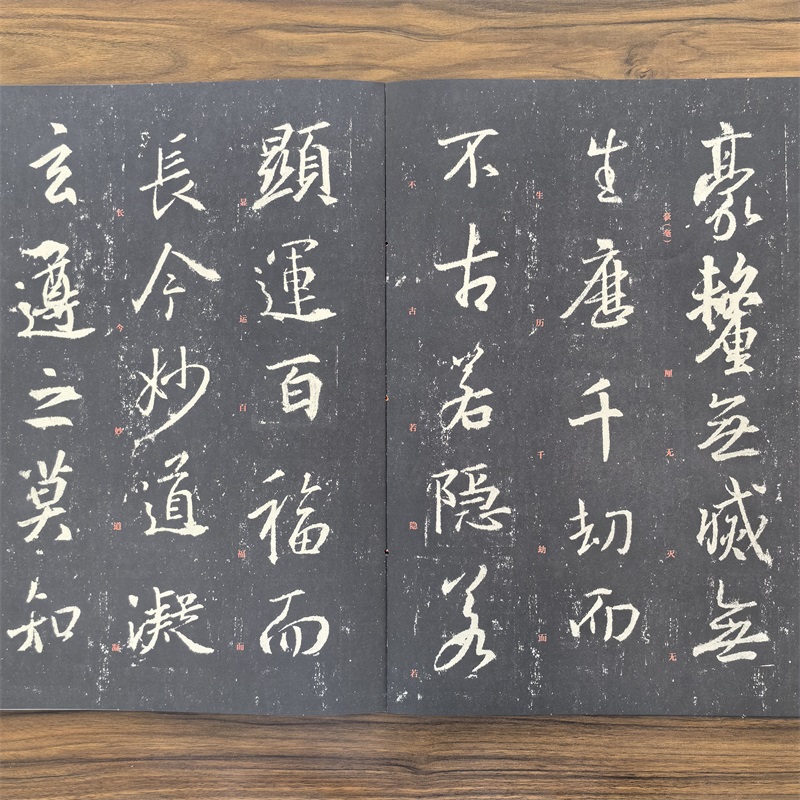 豪氂無滅無
生歷千劫而
不古若隱若
顯運百福而
長今妙道凝
玄遵之莫知
豪（毫）
厘
无
灭
无
生
历
千
劫
而
不
古
若
隐
若
显
运
百
福
而
长
今
妙
道
凝